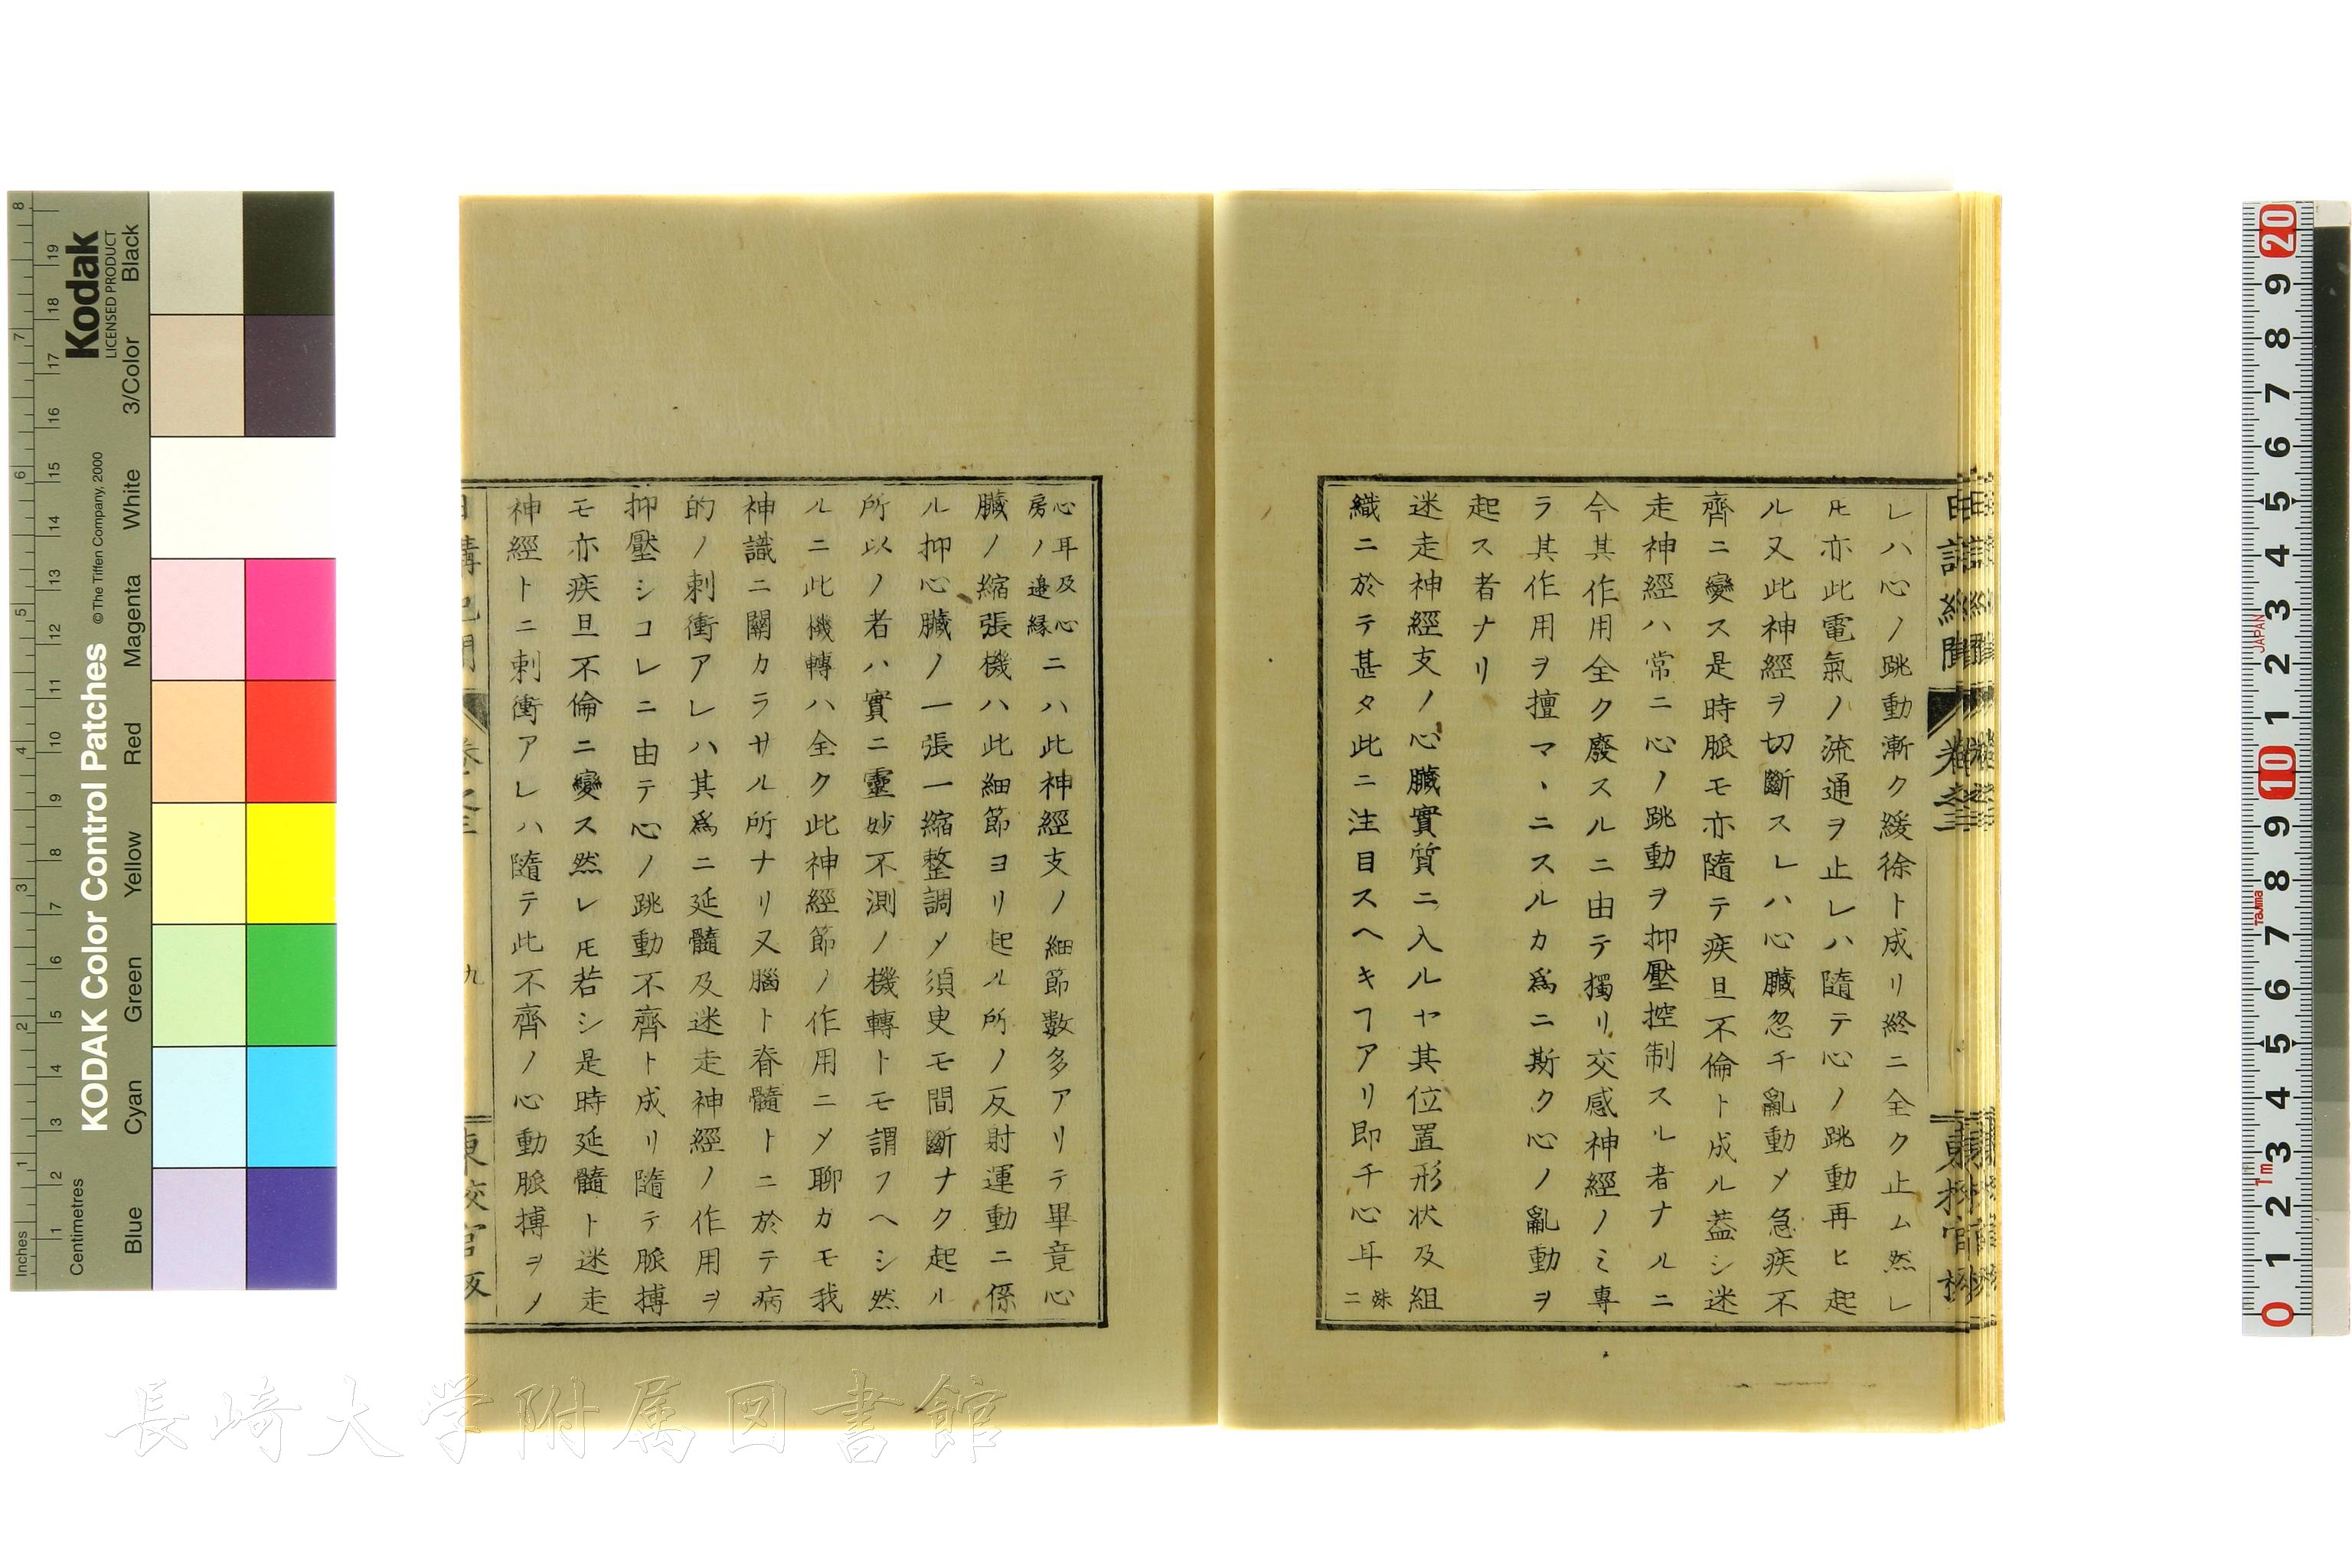 レハ心ノ跳動漸ク緩徐ト成リ終ニ全ク止ム然レ
𪜈亦此電氣ノ流通ヲ止レハ隨テ心ノ跳動再ヒ起
ル又此神經ヲ切斷スレハ心臓忽チ亂動〆急疾不
齊ニ變ス是時脈モ亦隨テ疾且不倫ト成ル葢シ迷
走神經ハ常ニ心ノ跳動ヲ抑壓控制スル者ナルニ
今其作用全ク廢スルニ由テ獨リ交感神經ノミ專
ラ其作用ヲ擅マヽニスルカ爲ニ斯ク心ノ亂動ヲ
起ス者ナリ
迷走神經支ノ心臓實質ニ入ルヤ其位置形状及組
織ニ於テ甚タ此ニ注目スヘキヿアリ即チ心耳殊ニ
心耳及心房ノ邉縁ニハ此神經支ノ細節數多アリテ畢竟心
臓ノ縮張機ハ此細節ヨリ起ル所ノ反射運動ニ係
ル抑心臓ノ一張一縮整調〆須臾モ間斷ナク起ル
所以ノ者ハ實ニ靈妙不測ノ機轉トモ謂フヘシ然
ルニ此機轉ハ全ク此神經節ノ作用ニ〆聊カモ我
神識ニ關カラサル所ナリ又腦ト脊髓トニ於テ病
的ノ刺衝アレハ其爲ニ延髓及迷走神經ノ作用ヲ
抑壓シコレニ由テ心ノ跳動不齊ト成リ隨テ脈搏
モ亦疾且不倫ニ變ス然レ𪜈若シ是時延髓ト迷走
神經トニ刺衝アレハ隨テ此不齊ノ心動脈搏ヲノ
九
Kodak
LICENSED PRODUCT
KODAK Color Control Patches
© The Tiffen Company, 2000
Inches 1 2 3 4 5 6 7 8
Centimetres 1 2 3 4 5 6 7 8 9 10 11 12 13 14 15 16 17 18 19
Blue Cyan Green Yellow Red Magenta White 3/Color Black
20 9 8 7 6 5 4 3 2 1 10 9 8 7 6 5 4 3 2 1 0
JAPAN
Tajima
1m
長崎大学附属図書館